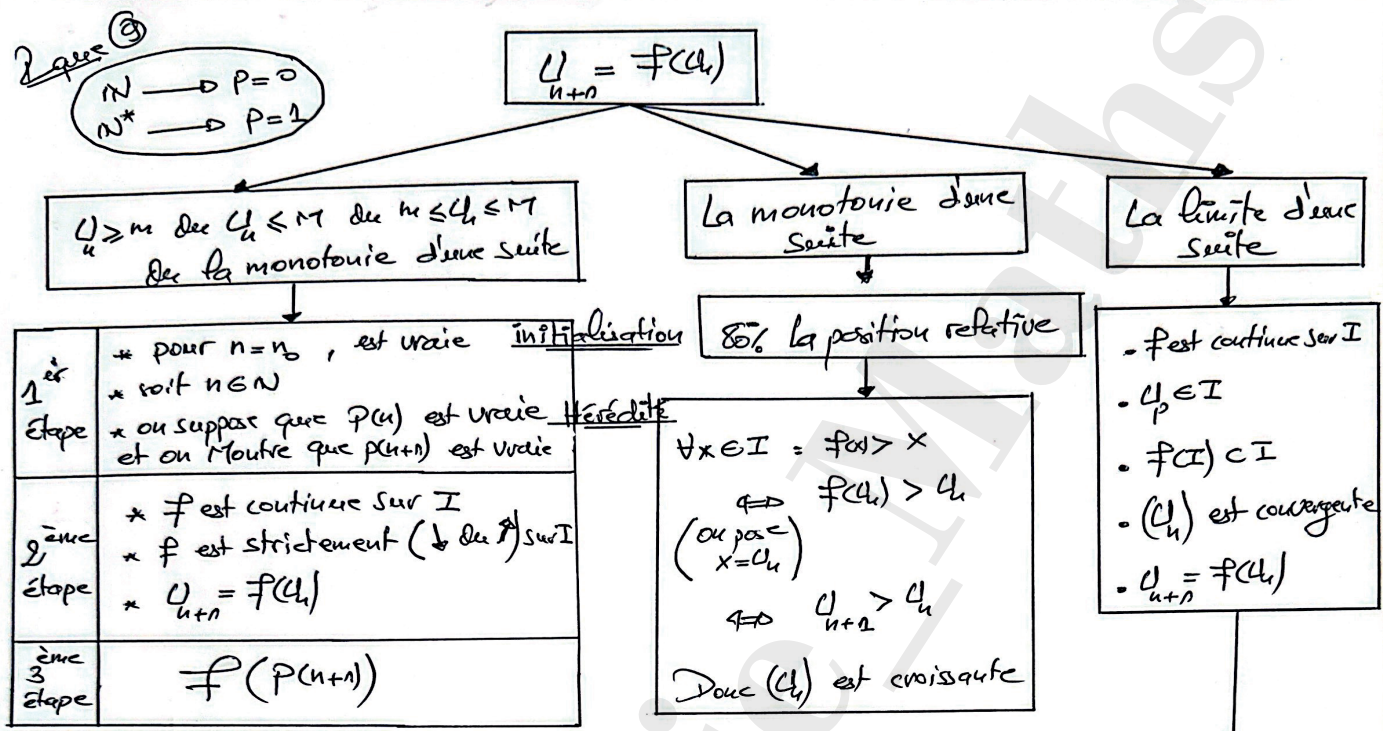 ℕ → P = 0
ℕ* → P = 1
U_{n+1} = f(U_n)
U_n ≥ m ou U_n ≤ M ou m ≤ U_n ≤ M
ou la monotonie d'une suite
1er étape
* pour n = n₀, est vraie initialisation
* soit n ∈ N
* on suppose que P(n) est vraie Hérédité
et on Montre que p(n+1) est vraie
2ème étape
* f est continue sur I
* f est strictement (↓ ou ↑) sur I
* U_{n+1} = f(U_n)
3ème étape
f(P(n+1))
La monotonie d'une
suite
80% la position relative
∀x ∈ I : f(x) > x
⇔ f(U_n) > U_n
(on pose
x = U_n)
⇔ U_{n+1} > U_n
Donc (U_n) est croissante
La limite d'une
suite
• f est continue sur I
• U_p ∈ I
• f(I) ⊂ I
• (U_n) est convergente
• U_{n+1} = f(U_n)
Maths